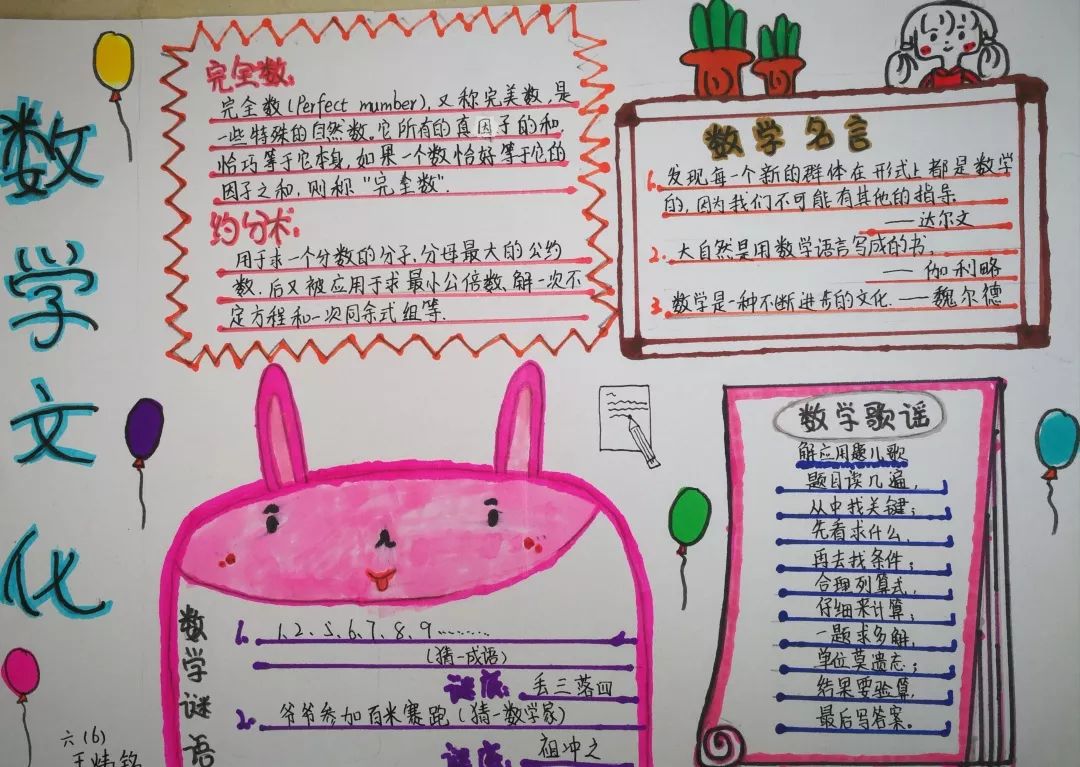 数学文化
完全数:
完全数(Perfect mumber),又称完美数,是
一些特殊的自然数.它所有的真因子的和,
恰巧等于它本身,如果一个数恰好等于它的
因子之和,则称"完全数".
约分术:
用于求一个分数的分子,分母最大的公约
数.后又被应用于求最小公倍数、解一次不
定方程和一次同余式组等.
数学名言
1.发现每一个新的群体在形式上都是数学
的,因为我们不可能有其他的指导
——达尔文
2.大自然是用数学语言写成的书,
— 伽利略
3.数学是一种不断进步的文化.——魏尔德
数学谜语
1. 1、2、5、6、7、8、9………
(猜一成语)
谜底:丢三落四
2. 爷爷参加百米赛跑(猜一数学家)
谜底:祖冲之
数学歌谣
解应用题儿歌
题目读几遍,
从中找关键;
先看求什么,
再去找条件;
合理列算式,
仔细来计算;
一题求多解,
单位莫遗忘;
结果要验算,
最后写答案。
六(6)